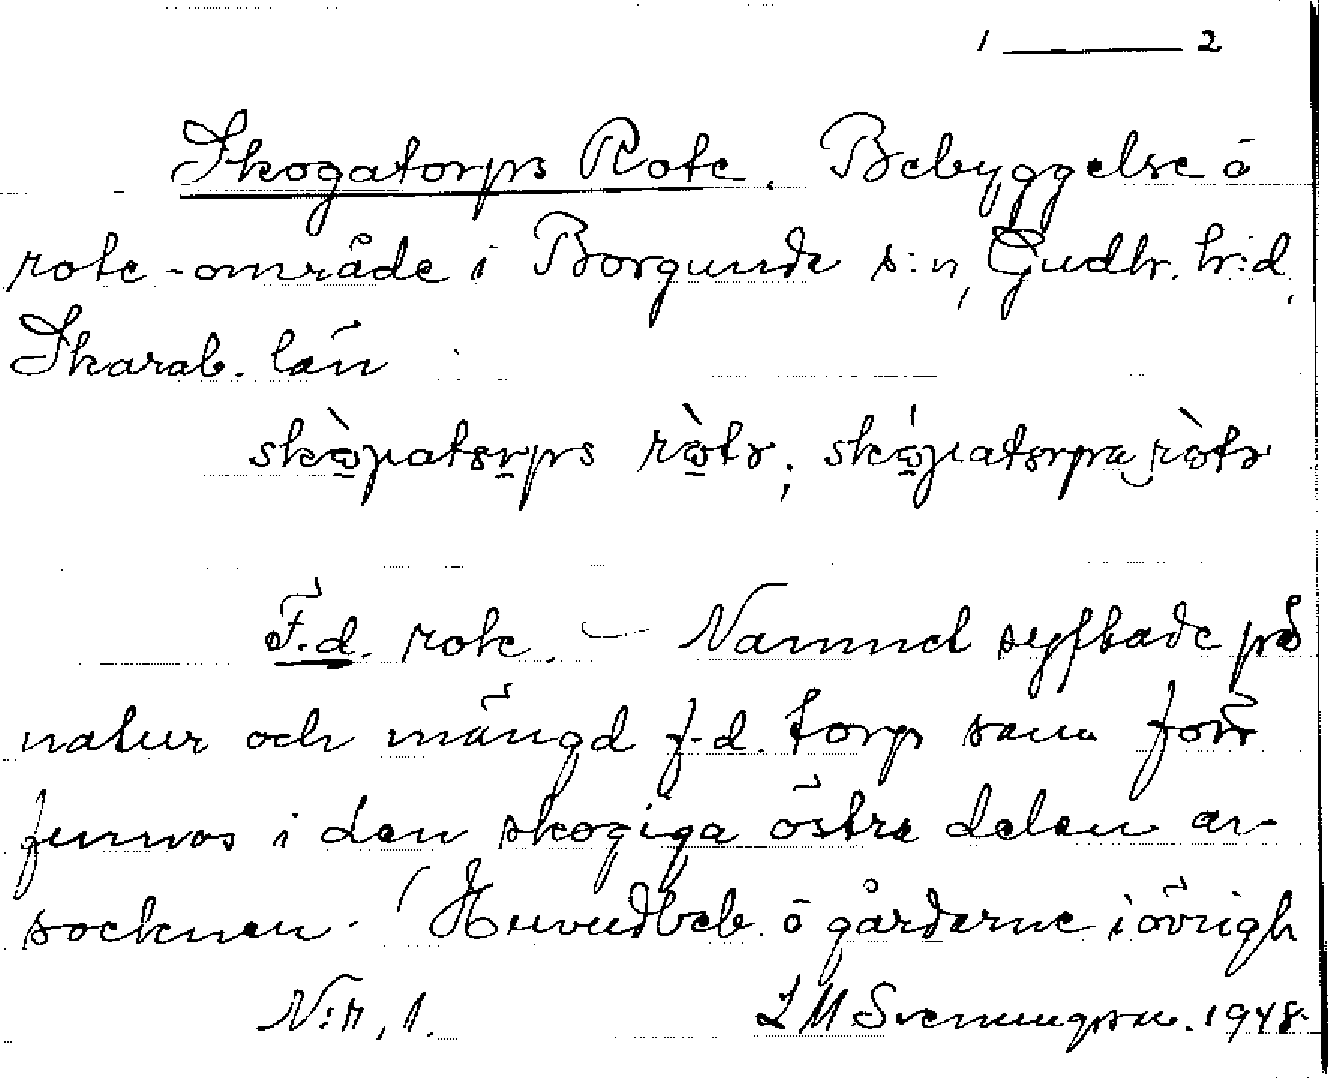 1 ——— 2
Skogatorps Rote. Bebyggelse ō
rote-område i Borgunda s:n, Gudh. h:d,
Skarab. län
F.d. rote. — Namnet syftade på
natur och mängd f.d. torp som förr
funnos i den skogiga östra delen av
socknen. (Huvudbeb. ō gårdarne i övrigt
N:r, 1. L M Svenungsson. 1948.